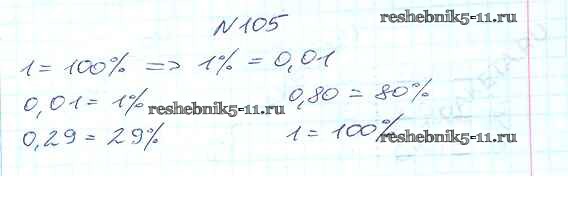 N105 reshebnik5-11.ru
1 = 100% => 1% = 0,01
0,01 = 1% reshebnik5-11.ru 0,80 = 80%
0,29 = 29% 1 = 100% reshebnik5-11.ru